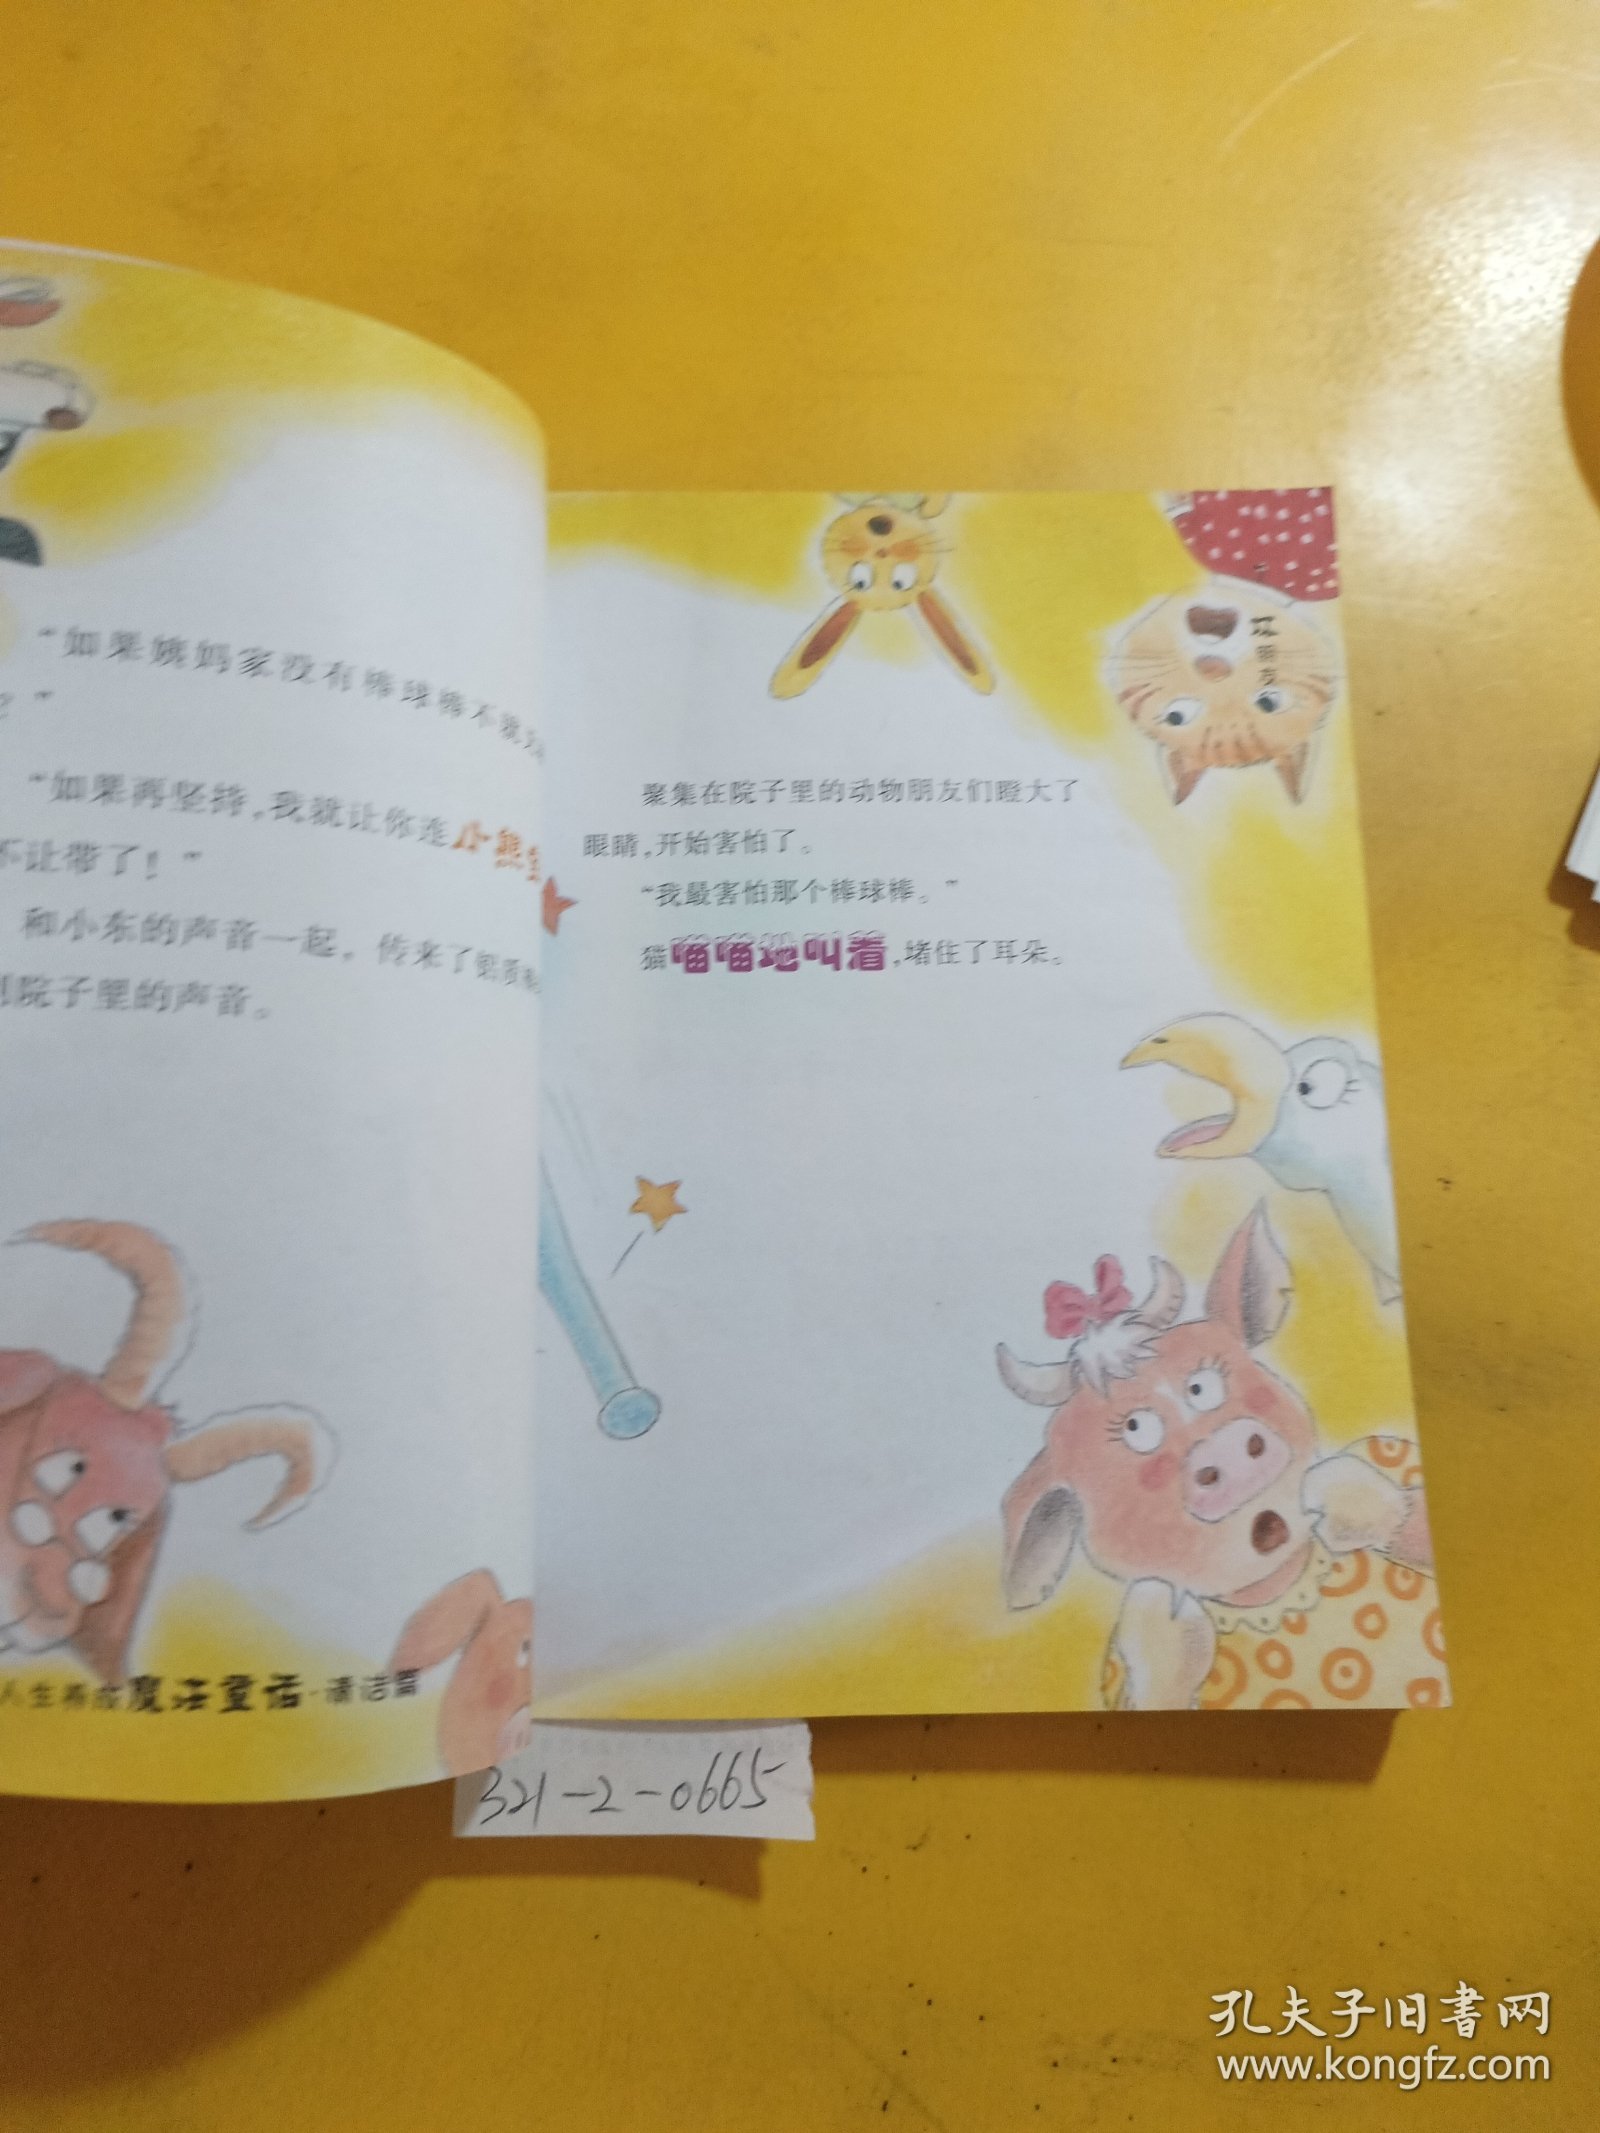 “如果姨妈家没有棒球棒不就
”
“如果再坚持，我就让你连小熊
不让带了！”
和小东的声音一起，传来了
院子里的声音。
人生
魔法童话·清洁篇
聚集在院子里的动物朋友们瞪大了
眼睛，开始害怕了。
“我最害怕那个棒球棒。”
猫喵喵地叫着，堵住了耳朵。
坏朋友
321-2-0665
孔夫子旧书网
www.kongfz.com